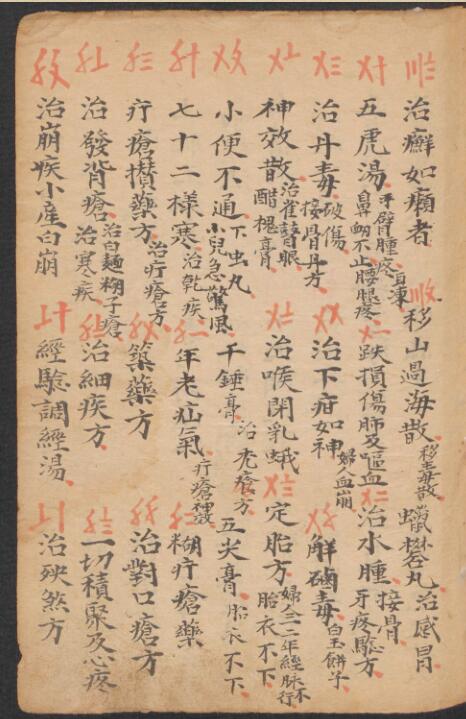 治癬如癩者 移山過海散 移毒散 蠟礬丸 治感冒
五虎湯 手臂腫疼 鼻衂不止 腰腿疼 身凍 跌損傷肺及嘔血 治水腫 接骨 牙疼驗方
治丹毒 破傷 接骨丹方 治下疳如神 婦人血崩 解毒 白玉餅子
神效散 治雀瞽眼 醋槐膏 治喉閉乳蛾 定胎方 胎衣不下 婦人二三年經脉不行
小便不通 下虫丸 小兒急驚風 千錘膏 治禿瘡方 五尖膏 胎衣不下
七十二樣寒 治乾疾 年老疝氣 疔瘡神效 糊疔瘡藥
疔瘡攢藥方 治疔瘡方 築藥方 治對口瘡方
治發背瘡 治白麵糊子瘡 治寒疾 治細疾方 一切積聚及心疼
治崩疾小産白崩 經驗調經湯 治殃煞方